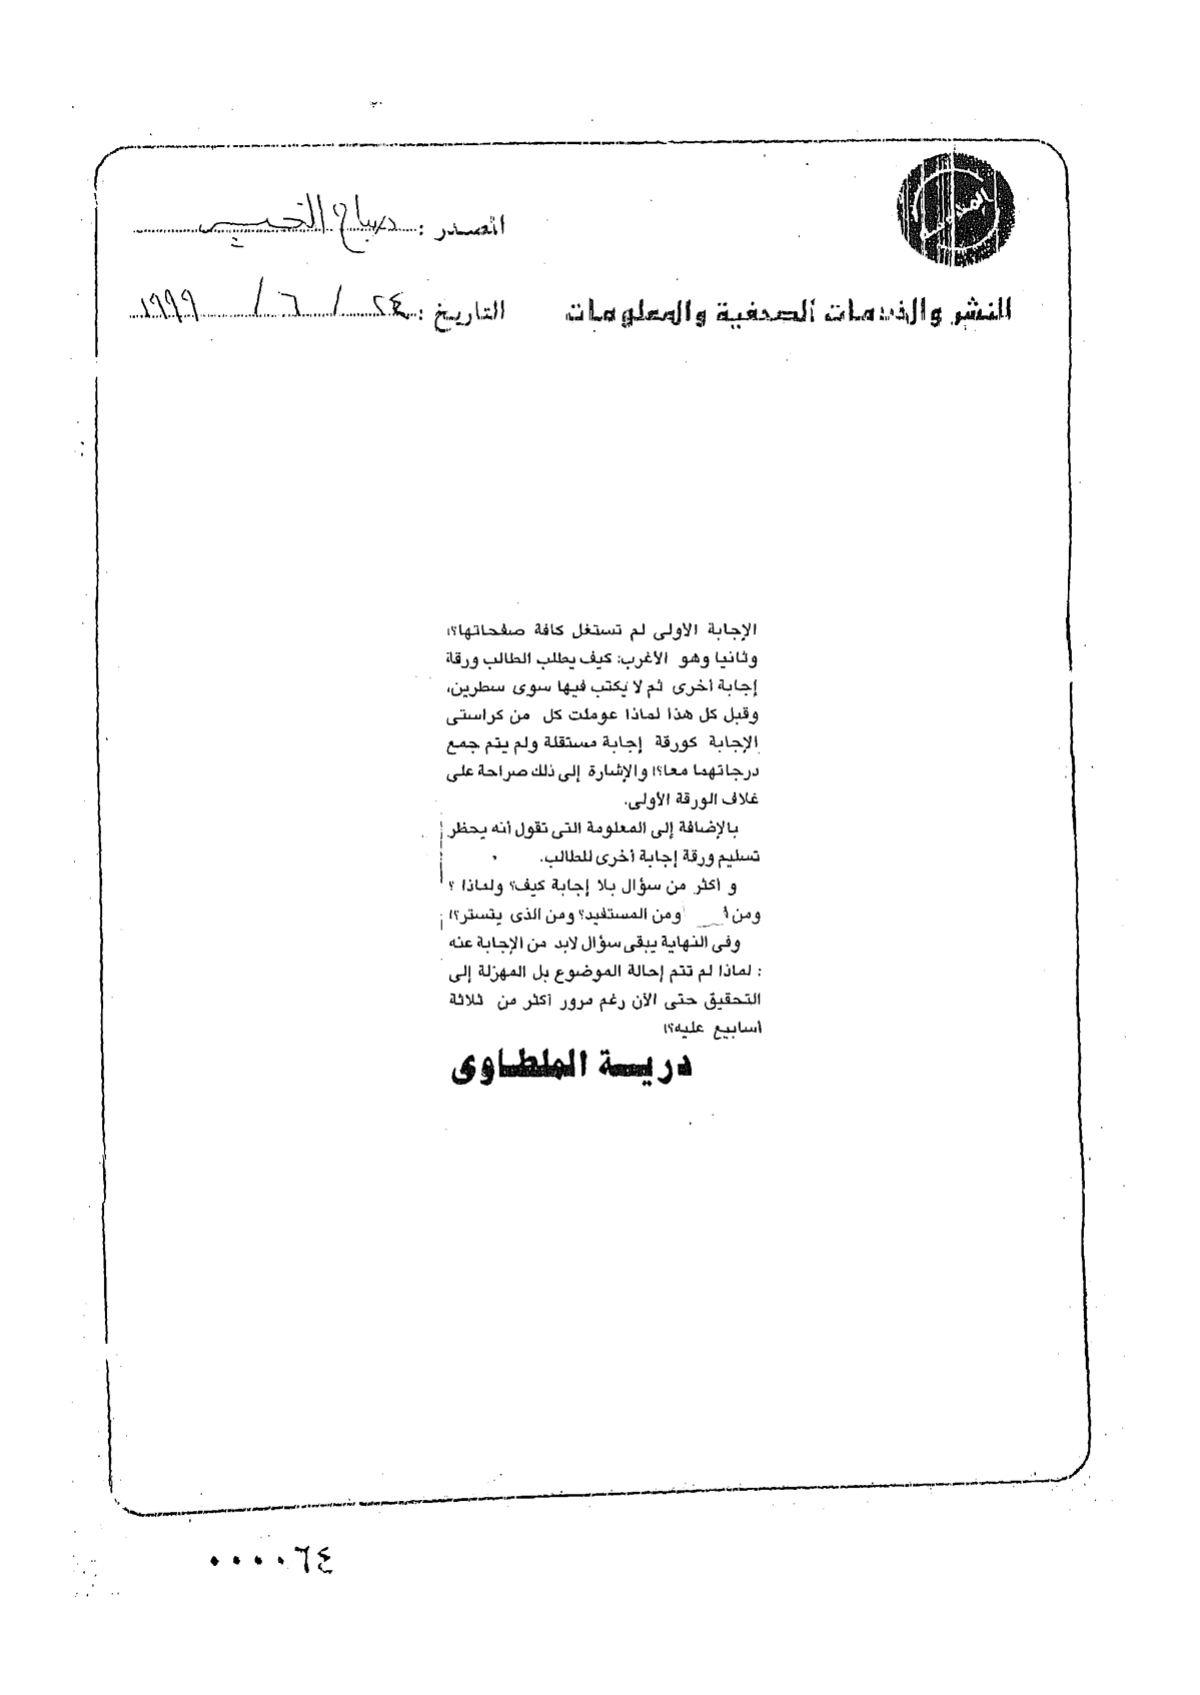 المصدر : صباح الخير
للنشر والخدمات الصحفية والمعلومات
التاريخ : ٢٤ / ٦ / ١٩٩٩
الإجابة الأولى لم تستغل كافة صفحاتها؟!
وثانيا وهو الأغرب: كيف يطلب الطالب ورقة
إجابة أخرى ثم لا يكتب فيها سوى سطرين،
وقبل كل هذا لماذا عوملت كل من كراستى
الإجابة كورقة إجابة مستقلة ولم يتم جمع
درجاتهما معا؟! والإشارة إلى ذلك صراحة على
غلاف الورقة الأولى.
بالإضافة إلى المعلومة التى تقول أنه يحظر
تسليم ورقة إجابة أخرى للطالب.
و أكثر من سؤال بلا إجابة كيف؟ ولماذا ؟
ومن ومن المستفيد؟ ومن الذى يتستر؟!
وفى النهاية يبقى سؤال لابد من الإجابة عنه
: لماذا لم تتم إحالة الموضوع بل المهزلة إلى
التحقيق حتى الآن رغم مرور أكثر من ثلاثة
أسابيع عليه؟!
درية الملطاوى
٠٠٠٠٦٤